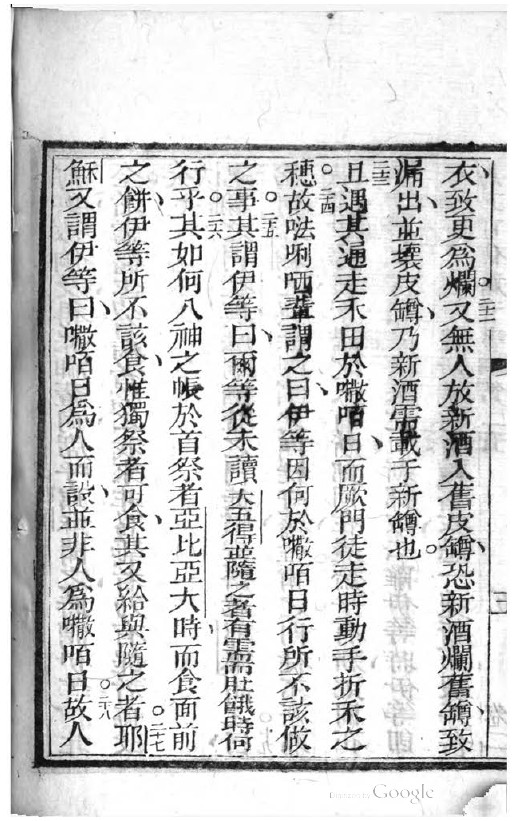 衣致更爲爛。二二又無人放新酒入舊皮罇、恐新酒爛舊罇、致
漏出、並壞皮罇、乃新酒需載于新罇也。
二三且遇其通走禾田於㘔咟日、而厥門徒走時動手折禾之
穗。二四故𠵽唎哂輩謂之曰、伊等因何於㘔咟日行所不該做
之事。二五其謂伊等曰、爾等從未讀大五得並隨之者有需需肚餓時何
行乎。二六其如何入神之帳於首祭者亞比亞大時、而食面前
之餅、伊等所不該食、惟獨祭者可食、其又給與隨之者耶。二七
穌又謂伊等曰、㘔咟日爲人而設、並非人爲㘔咟日。二八故人
Digitized by Google